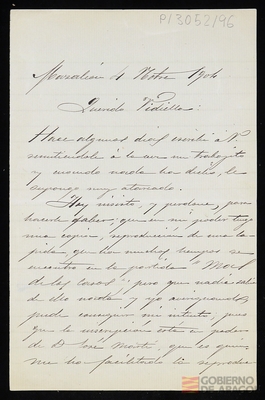 P/3052/96
Mazaleón 4 Nbre 1904
Querido Vidiella:
Hace algunos días escribí a V.
remitiéndole à la vez un trabajito
y cuando nada ha dicho, le
supongo muy atareado.
Hoy mismo, y perdone, para
hacerle saber, que en mi poder tengo
una copia, reproducción de una la-
pida, que hace mucho tiempo se
encontro en la partida "Mas
de las cosas"; pero que nadie sabia
de ello nada y yo averiguandolo
pude conseguir mi intento, pues
que la inscripción está a poder
de D José Martí, que es quien
me ha facilitado la reproduc-
GOBIERNO
DE ARAGON